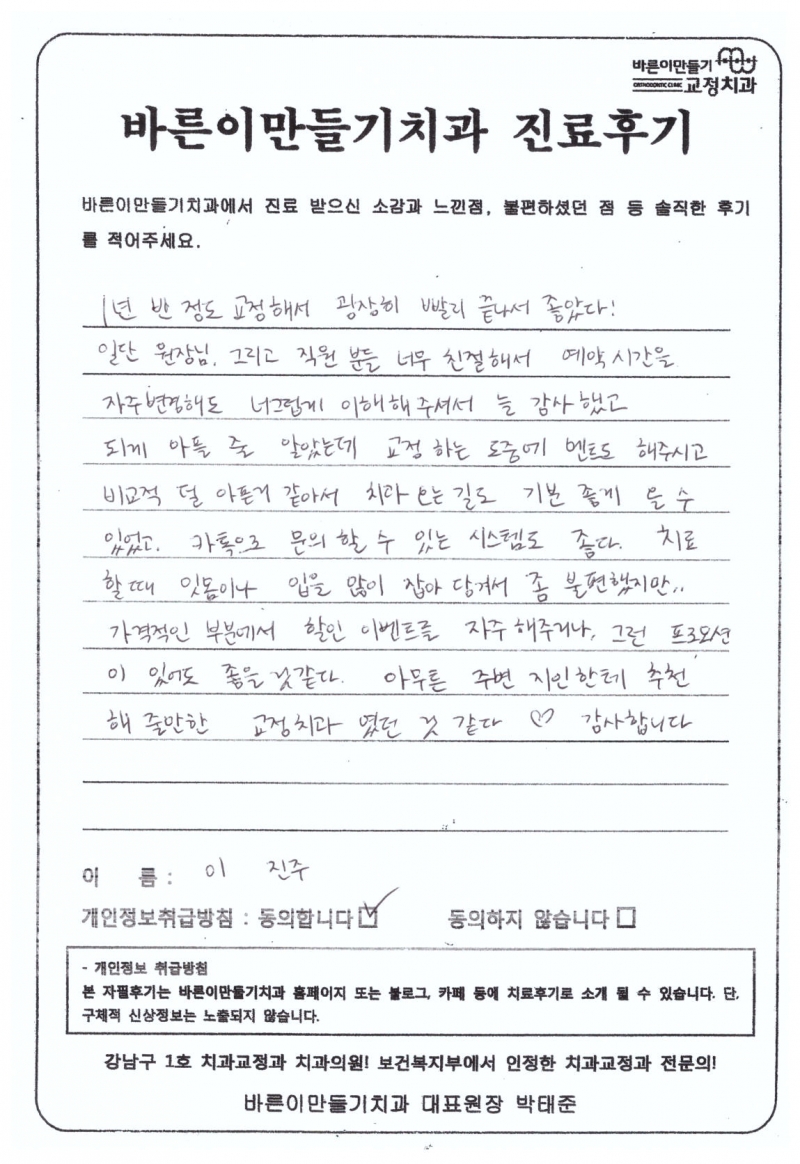 바른이만들기
ORTHODONTIC CLINIC 교정치과
바른이만들기치과 진료후기
바른이만들기치과에서 진료 받으신 소감과 느낀점, 불편하셨던 점 등 솔직한 후기
를 적어주세요.
1년 반 정도 교정해서 굉장히 빨리 끝나서 좋았다!
일단 원장님, 그리고 직원 분들 너무 친절해서 예약시간을
자주변경해도 너그럽게 이해해주셔서 늘 감사했고
되게 아플 줄 알았는데 교정 하는 도중에 멘트도 해주시고
비교적 덜 아픈거 같아서 치과 오는길도 기분 좋게 올 수
있었고. 카톡으로 문의 할 수 있는 시스템도 좋다. 치료
할때 잇몸이나 입을 많이 잡아 당겨서 좀 불편했지만..
가격적인 부분에서 할인 이벤트를 자주 해주거나, 그런 프로모션
이 있어도 좋을 것같다. 아무튼 주변 지인한테 추천
해 줄만한 교정치과 였던 것 같다 ♡ 감사합니다
이 름 : 이 진주
개인정보취급방침 : 동의합니다 ☑ 동의하지 않습니다 □
- 개인정보 취급방침
본 자필후기는 바른이만들기치과 홈페이지 또는 블로그, 카페 등에 치료후기로 소개 될 수 있습니다. 단,
구체적 신상정보는 노출되지 않습니다.
강남구 1호 치과교정과 치과의원! 보건복지부에서 인정한 치과교정과 전문의!
바른이만들기치과 대표원장 박태준